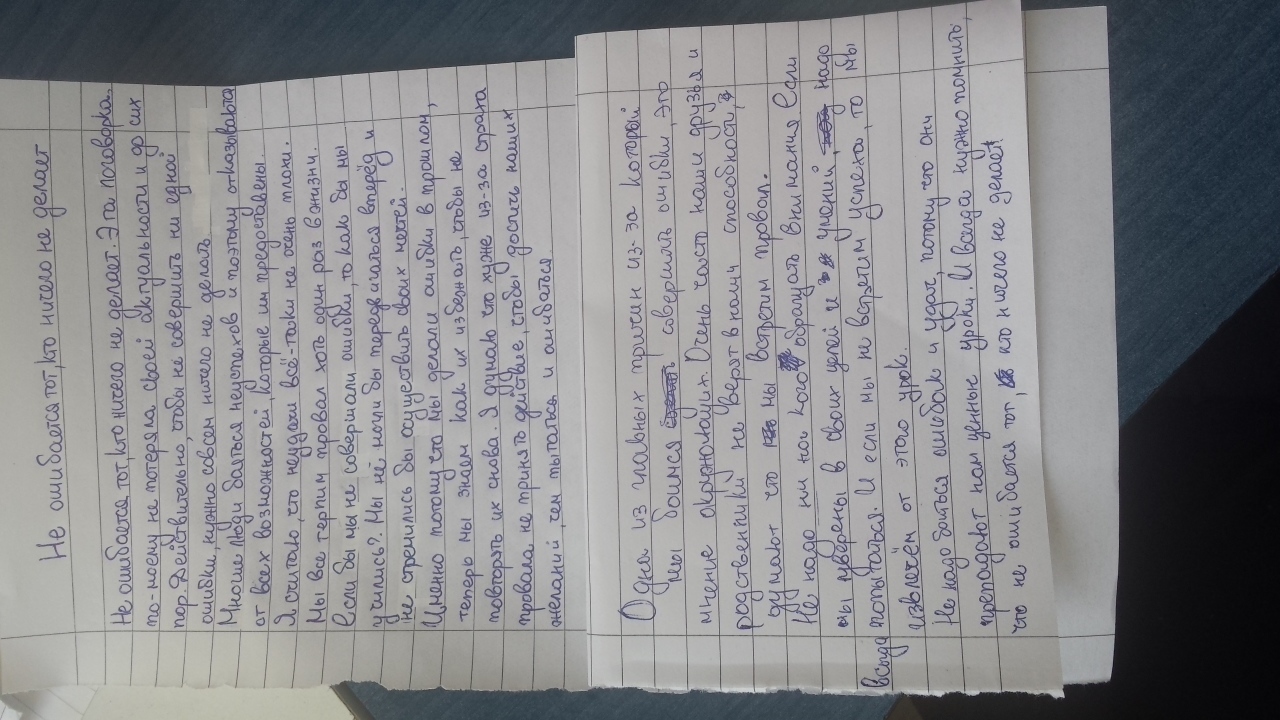 Не ошибается тот, кто ничего не делает
Не ошибается тот, кто ничего не делает. Эта поговорка.
по-моему не потеряла своей актуальности и до сих
пор. Действительно, чтобы не совершить ни едной
ошибки, нужно совсем ничего не делать
Многие люди бояться неуспехов и поэтому отказываются
от всех возможностей, которые им предоставены.
Я считаю, что неудачи всё-таки не очень плохи.
Мы все терпим провал хоть один раз в жизни.
Если бы мы не совершали ошибки, то как бы мы
учились? Мы не могли бы передвигаться вперёд и
не стремились бы осуществить своих мечтей.
Именно потому что мы делали ошибки в прошлом,
теперь мы знаем как их избежать, чтобы не
повторять их снова. Я думаю что хуже из-за страха
провала не принять действие, чтобы достичь наших
желаний, чем пытаться и ошибаться.
Одна из главных причин из-за которой
мы боимся совершить ошибки, это
мнение окружающих. Очень часто наши друзья и
родственники не верят в наши способности,
думают что мы встретим провал.
Не надо ни на кого обращать внимания если
мы уверены в своих целей и умений, надо
всегда попытаться. И если мы не встретим успеха, то мы
извлечём от этого урок.
Не надо бояться ошибок и удач, потому что они
преподают нам ценные уроки. И всегда нужно помнить,
что не ошибается тот, кто ничего не делает